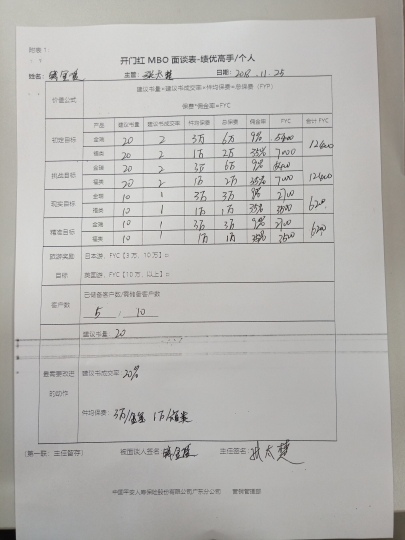 附表 1：
开门红 MBO 面谈表-绩优高手/个人
姓名： 主管： 日期：2018.11.25
价值公式 建议书量×建议书成交率×件均保费=总保费（FYP）
保费*佣金率=FYC
产品 建议书量 建议书成交率 件均保费 总保费 佣金率 FYC 合计 FYC
初定目标 金瑞 20 2 3万 6万 9% 5400 12400
福类 20 2 1万 2万 35% 7000
挑战目标 金瑞 20 2 3万 6万 9% 5400 12400
福类 20 2 1万 2万 35% 7000
现实目标 金瑞 10 1 3万 3万 9% 2700 6200
福类 10 1 1万 1万 35% 3500
精准目标 金瑞 10 1 3万 3万 9% 2700 6200
福类 10 1 1万 1万 35% 3500
旅游奖励 日本游，FYC【3万，10万】
目标 英国游，FYC【10万，以上】
客户数 已储备客户数/需储备客户数
5 / 10
最需要改进的动作
建议书量：20
建议书成交率：20%
件均保费：3万/ 1万/
（第一联：主任留存） 被面谈人签名： 主任签名：
中国平安人寿保险股份有限公司广东分公司 营销管理部